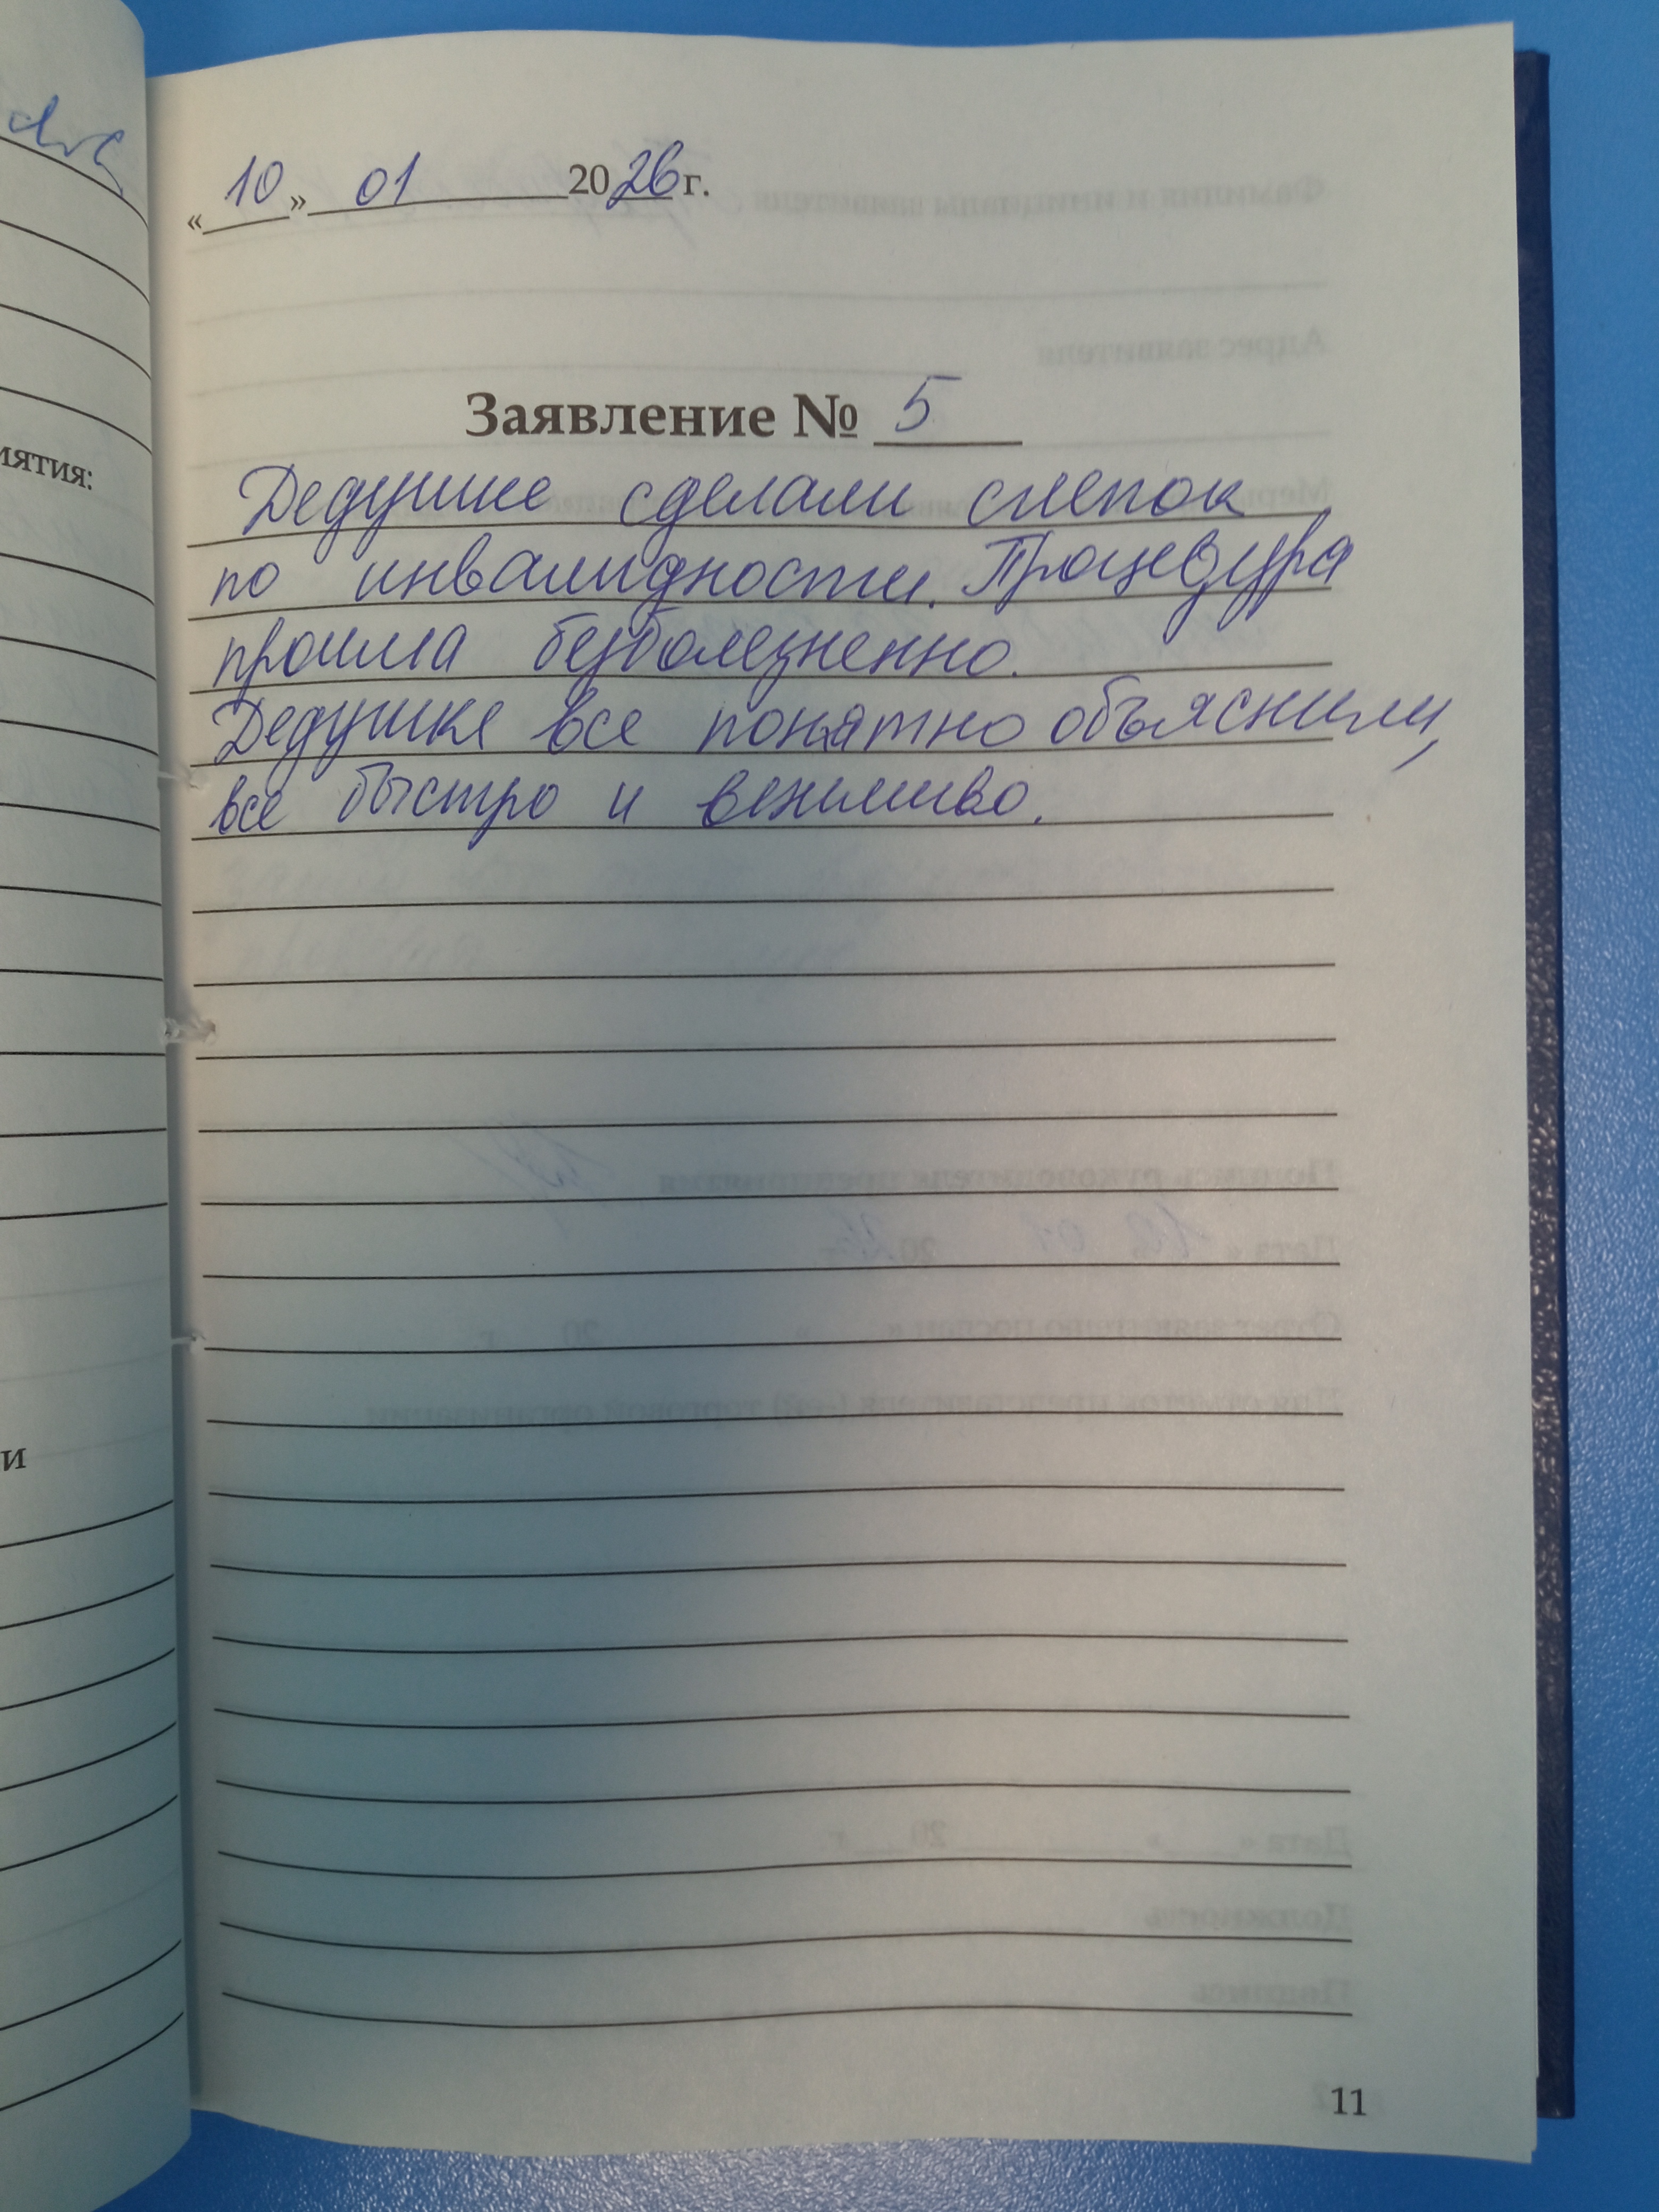 «10» 01 2026 г.
Заявление № 5
Дедушке сделали слепок
по инвалидности. Процедура
прошла безболезненно.
Дедушке все понятно объяснили,
все быстро и вежливо.
11
иятия:
и